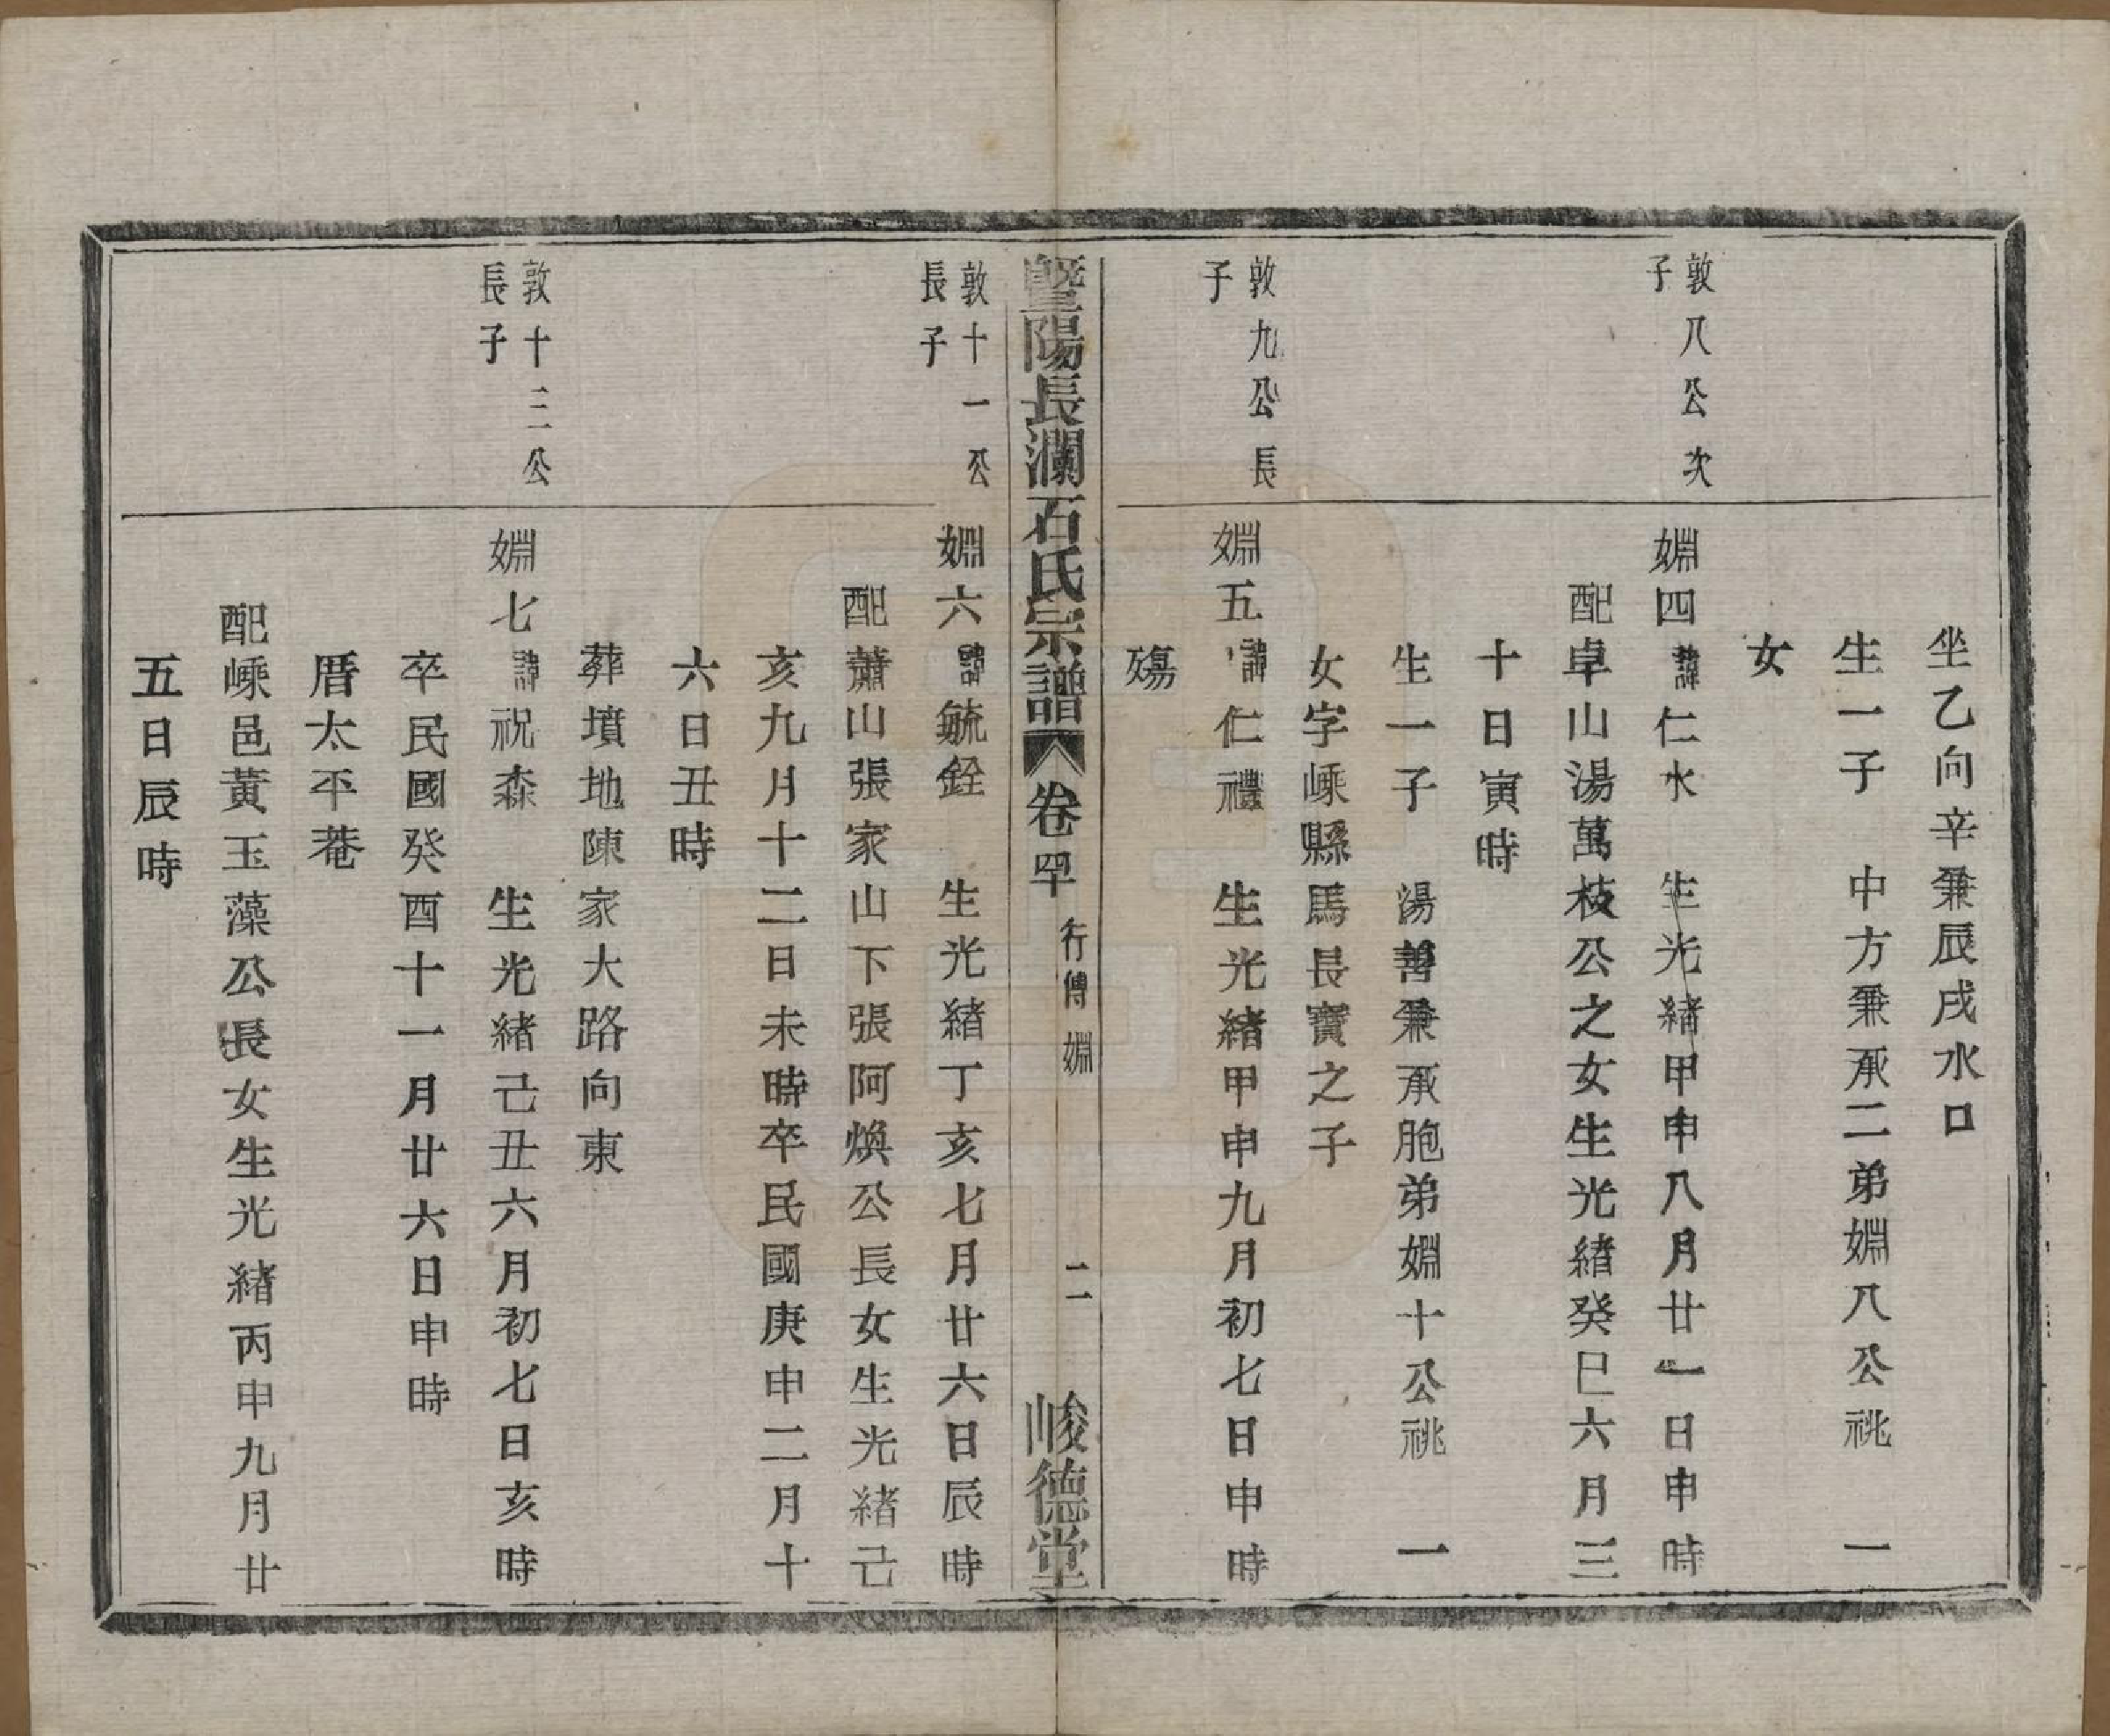 坐乙向辛兼辰戌水口
生一子　中方兼承二弟婣八公祧　一
女
敦八公次
子
婣四諱仁水　生光緒甲申八月廿一日申時
配卓山湯萬枝公之女生光緒癸巳六月三
十日寅時
生一子　湯善兼承胞弟婣十公祧　一
女字嵊縣馬長寶之子
敦九公長
子
婣五諱仁禮　生光緒甲申九月初七日申時
殤
暨陽長瀾石氏宗譜　卷四十　行傳　婣　二　峻德堂
敦十一公
長子
婣六諱毓銓　生光緒丁亥七月廿六日辰時
配蕭山張家山下張阿煥公長女生光緒己
亥九月十二日未時卒民國庚申二月十
六日丑時
葬墳地陳家大路向東
敦十三公
長子
婣七諱祝森　生光緒己丑六月初七日亥時
卒民國癸酉十一月廿六日申時
厝太平菴
配嵊邑黃玉藻公長女生光緒丙申九月廿
五日辰時